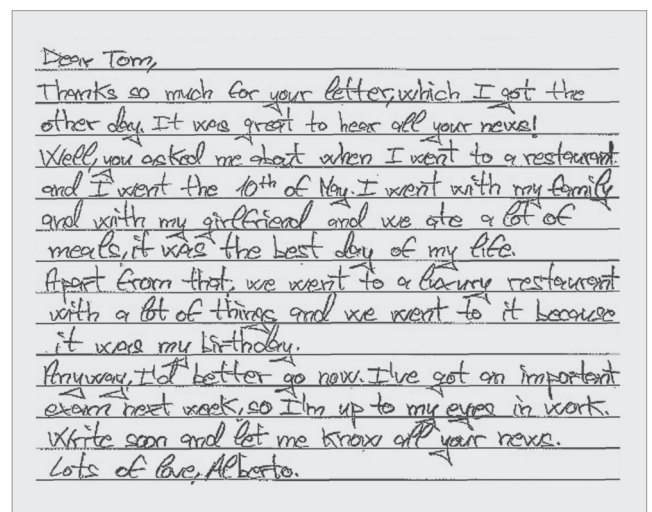 Dear Tom,
Thanks so much for your letter, which I got the
other day. It was great to hear all your news!
Well, you asked me about when I went to a restaurant
and I went the 10th of May. I went with my family
and with my girlfriend and we ate a lot of
meals, it was the best day of my life.
Apart from that, we went to a luxury restaurant
with a lot of things and we went to it because
it was my birthday.
Anyway, I'd better go now. I've got an important
exam next week, so I'm up to my eyes in work.
Write soon and let me know all your news.
Lots of love, Alberto.